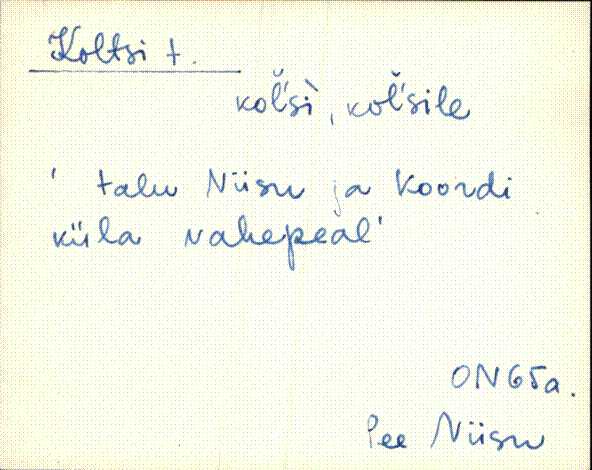 Koltsi t.
kol̆'sì, kol̆'sile
' talu Niisu ja Koordi
küla vahepeal'
ON65a.
Pee Niisu